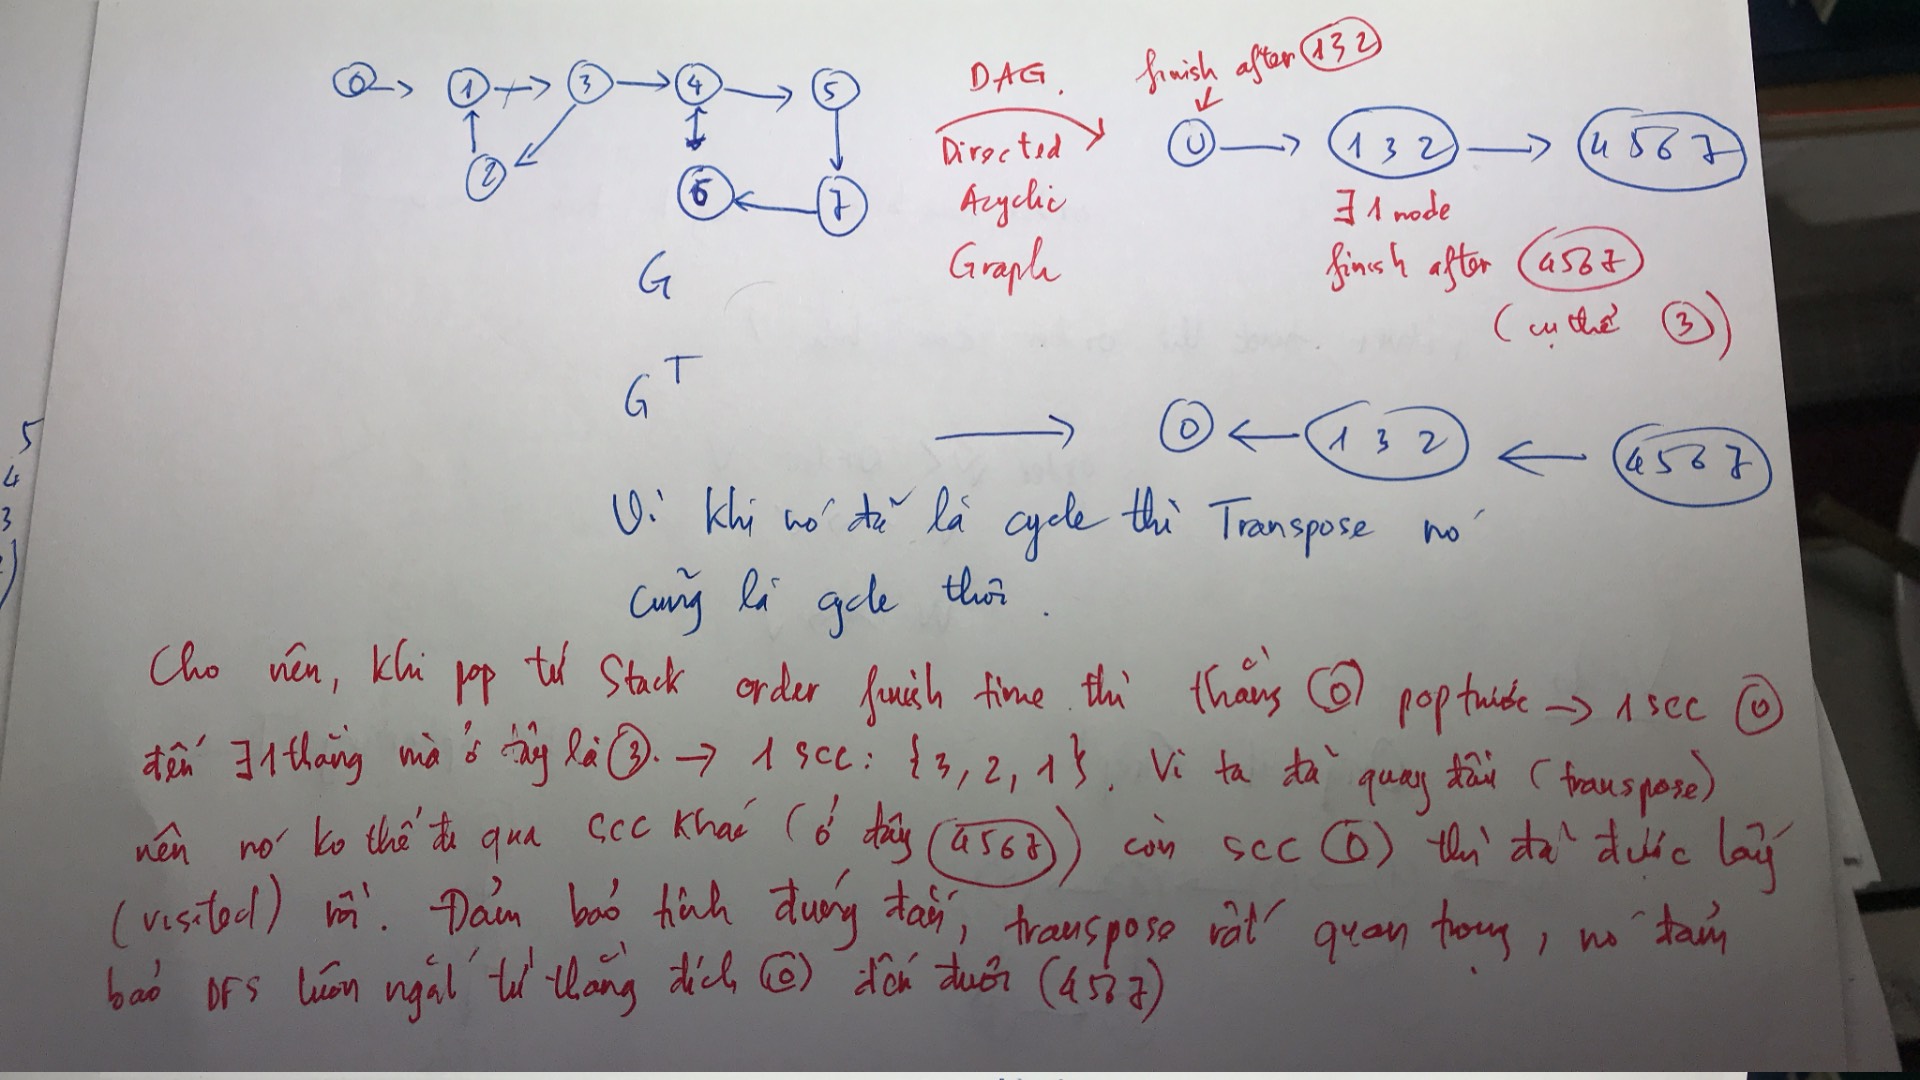 0 → 1 → 3 → 4 → 5
2
6 ← 7
G
DAG.
Directed
Acyclic
Graph
finish after 132
0 → 132 → 4567
∃ 1 node
finish after 4567
(cụ thể 3)
G^T
→ 0 ← 132 ← 4567
Vì khi nó đã là cycle thì Transpose nó
cũng là cycle thôi.
Cho nên, khi pop từ Stack order finish time thì thằng 0 pop trước → 1 scc 0
đến ∃ 1 thằng mà ở đây là 3. → 1 scc: {3, 2, 1}. Vì ta đã quay đầu (transpose)
nên nó ko thể đi qua scc khác (ở đây 4567) còn scc 0 thì đã được lấy
(visited) rồi. Đảm bảo tính đúng đắn, transpose rất quan trọng, nó đảm
bảo DFS luôn ngắt từ thằng đích 0 đến đuôi (4567)
5
4
3